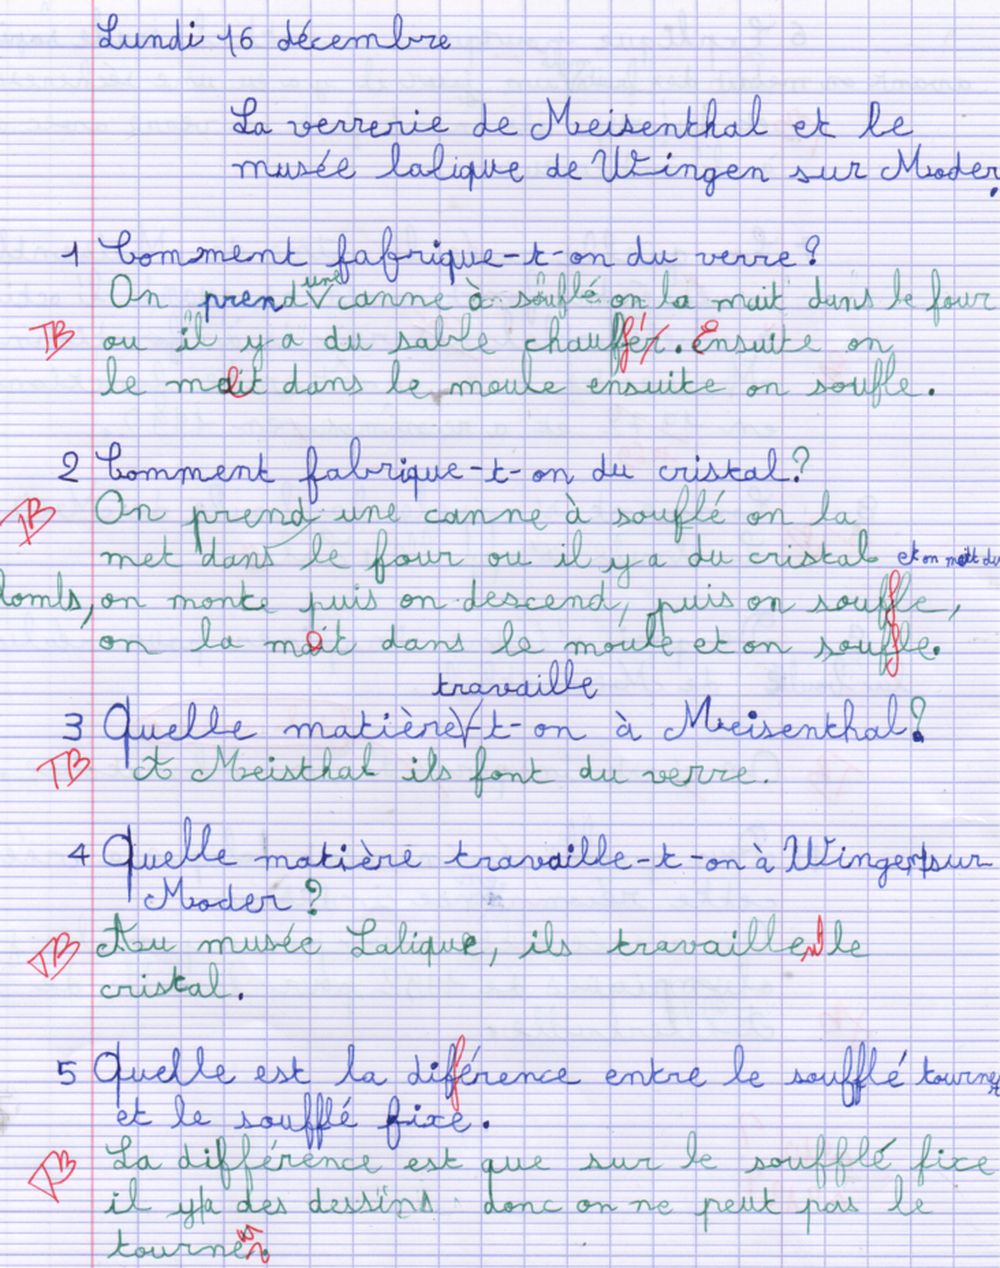 Lundi 16 décembre
La verrerie de Meisenthal et le
musée lalique de Wingen sur Moder.
1 Comment fabrique-t-on du verre?
On prend une canne à soufflé on la mait dans le four
TB ou il y a du sable chauffé. Ensuite on
le met dans le moule ensuite on soufle.
2 Comment fabrique-t-on du cristal?
TB On prend une canne à soufflé on la
met dans le four ou il y a du cristal et on mait du
plomb, on monte puis on descend, puis on souffle,
on la met dans le moule et on souffle.
travaille
3 Quelle matière t-on à Meisenthal?
TB A Meisthal ils font du verre.
4 Quelle matière travaille-t-on à Wingen sur
Moder?
TB Au musée Lalique, ils travaillent le
cristal.
5 Quelle est la différence entre le soufflé tourné
et le soufflé fixe.
TB La différence est que sur le soufflé fixe
il y a des dessins donc on ne peut pas le
tourner.